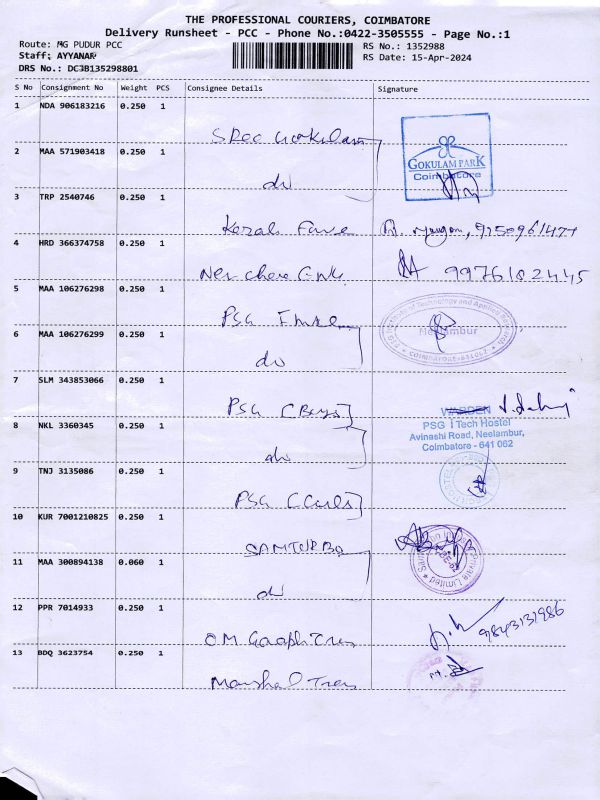 THE PROFESSIONAL COURIERS, COIMBATORE
Delivery Runsheet - PCC - Phone No.:0422-3505555 - Page No.:1
Route: MG PUDUR PCC RS No.: 1352988
Staff: AYYANAR RS Date: 15-Apr-2024
DRS No.: DC3B135298801
S No Consignment No Weight PCS Consignee Details Signature
1 NDA 906183216 0.250 1
GOKULAM PARK
Coimbatore
2 MAA 571903418 0.250 1
3 TRP 2540746 0.250 1
4 HRD 366374758 0.250 1
9976182445
5 MAA 106276298 0.250 1
PSG
PSG Institute of Technology and Applied Research
Neelambur
COIMBATORE-641062
6 MAA 106276299 0.250 1
7 SLM 343853066 0.250 1
PSG [Boys]
WARDEN
PSG iTech Hostel
Avinashi Road, Neelambur,
Coimbatore - 641 062
8 NKL 3360345 0.250 1
9 TNJ 3135086 0.250 1
PSG
10 KUR 7001210825 0.250 1
Private Limited
11 MAA 300894138 0.060 1
12 PPR 7014933 0.250 1
OM
9843131986
13 BDQ 3623754 0.250 1
Marshal